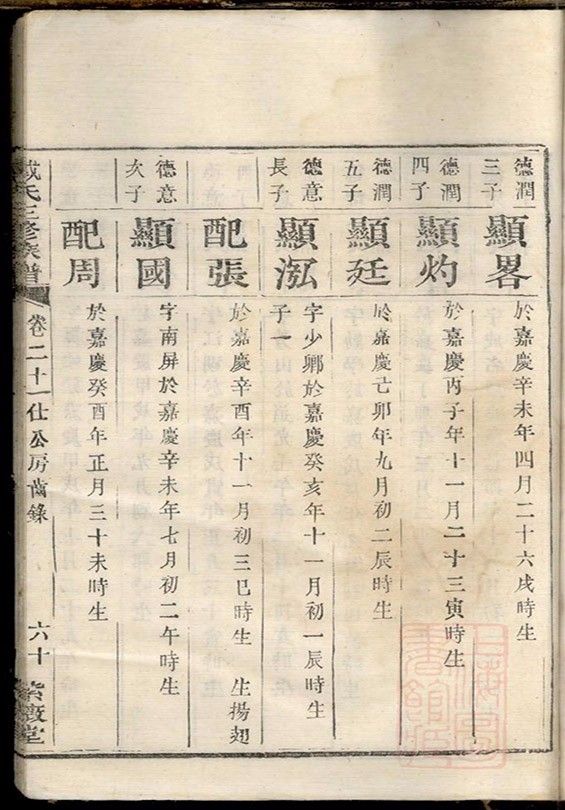 德潤
三子
顯畧
於嘉慶辛未年四月二十六戌時生
德潤
四子
顯灼
於嘉慶丙子年十一月二十三寅時生
德潤
五子
顯廷
於嘉慶己卯年九月初二辰時生
德意
長子
顯泓
字少鄉於嘉慶癸亥年十一月初一辰時生
子一
配張
於嘉慶辛酉年十一月初三巳時生 生揚翅
德意
次子
顯國
字南屏於嘉慶辛未年七月初二午時生
配周
於嘉慶癸酉年正月三十未時生
氏三修族譜 卷二十一仕公房齒錄 六十 紫薇堂